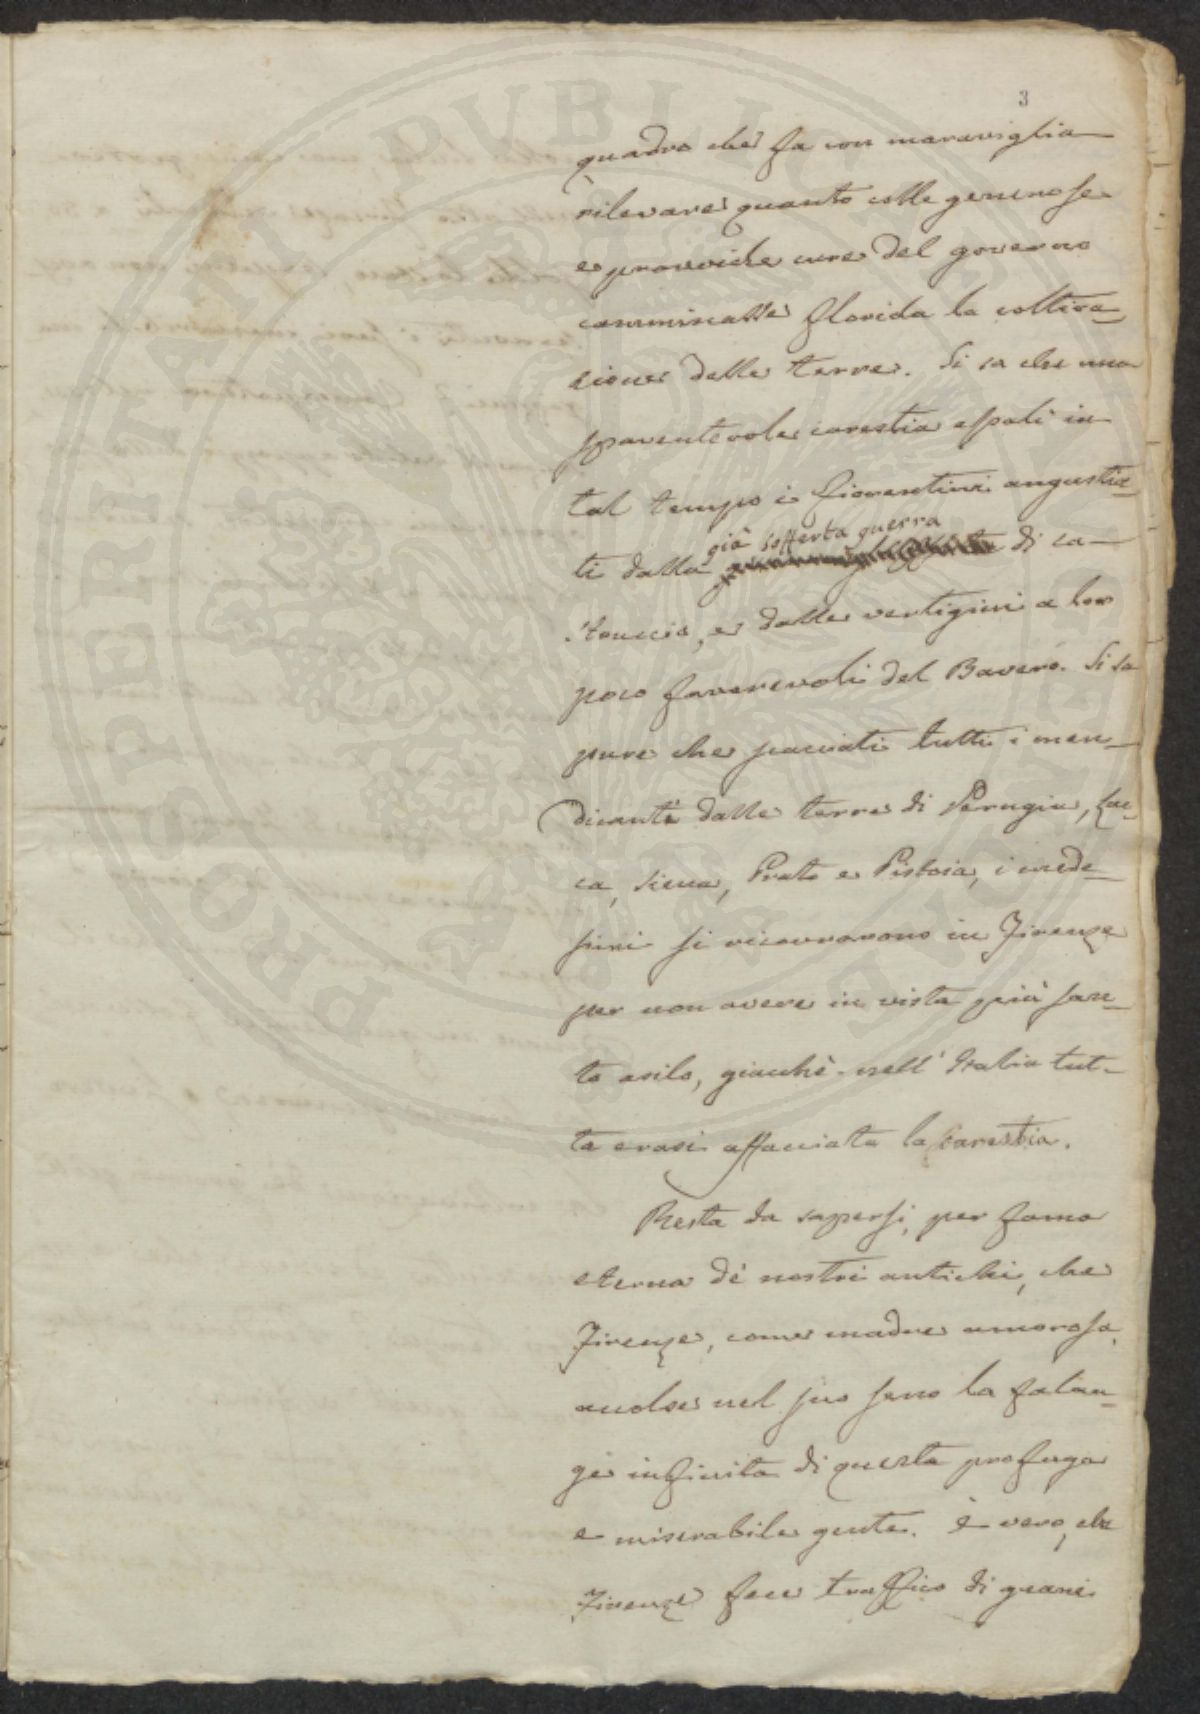 PROSPERITATI PUBLICAE AUGENDAE
3
quadro che fa con maraviglia
rilevare quanto colle generose
e provvide cure del governo
camminasse florida la coltiva-
zione delle terre. Si sa che una
spaventevole carestia assalì in
tal tempo i fiorentini angustia-
già sofferta guerra
ti dalla di Ca-
struccio, e dalle vertigini a loro
poco favorevoli del Bavero. Si sa
pure che scacciati tutti i men-
dicanti dalle terre di Perugia, Luc-
ca, Siena, Prato e Pistoia, i mede-
simi si ricovrarono in Firenze
per non avere in vista più san-
to asilo, giacchè nell'Italia tut-
ta erasi affacciata la carestia.
Resta da sapersi, per fama
eterna dè nostri antichi, che
Firenze, come madre amorosa,
accolse nel suo seno la falan-
ge infinita di questa profuga
e miserabile gente. È vero, che
Firenze fece traffico di grani